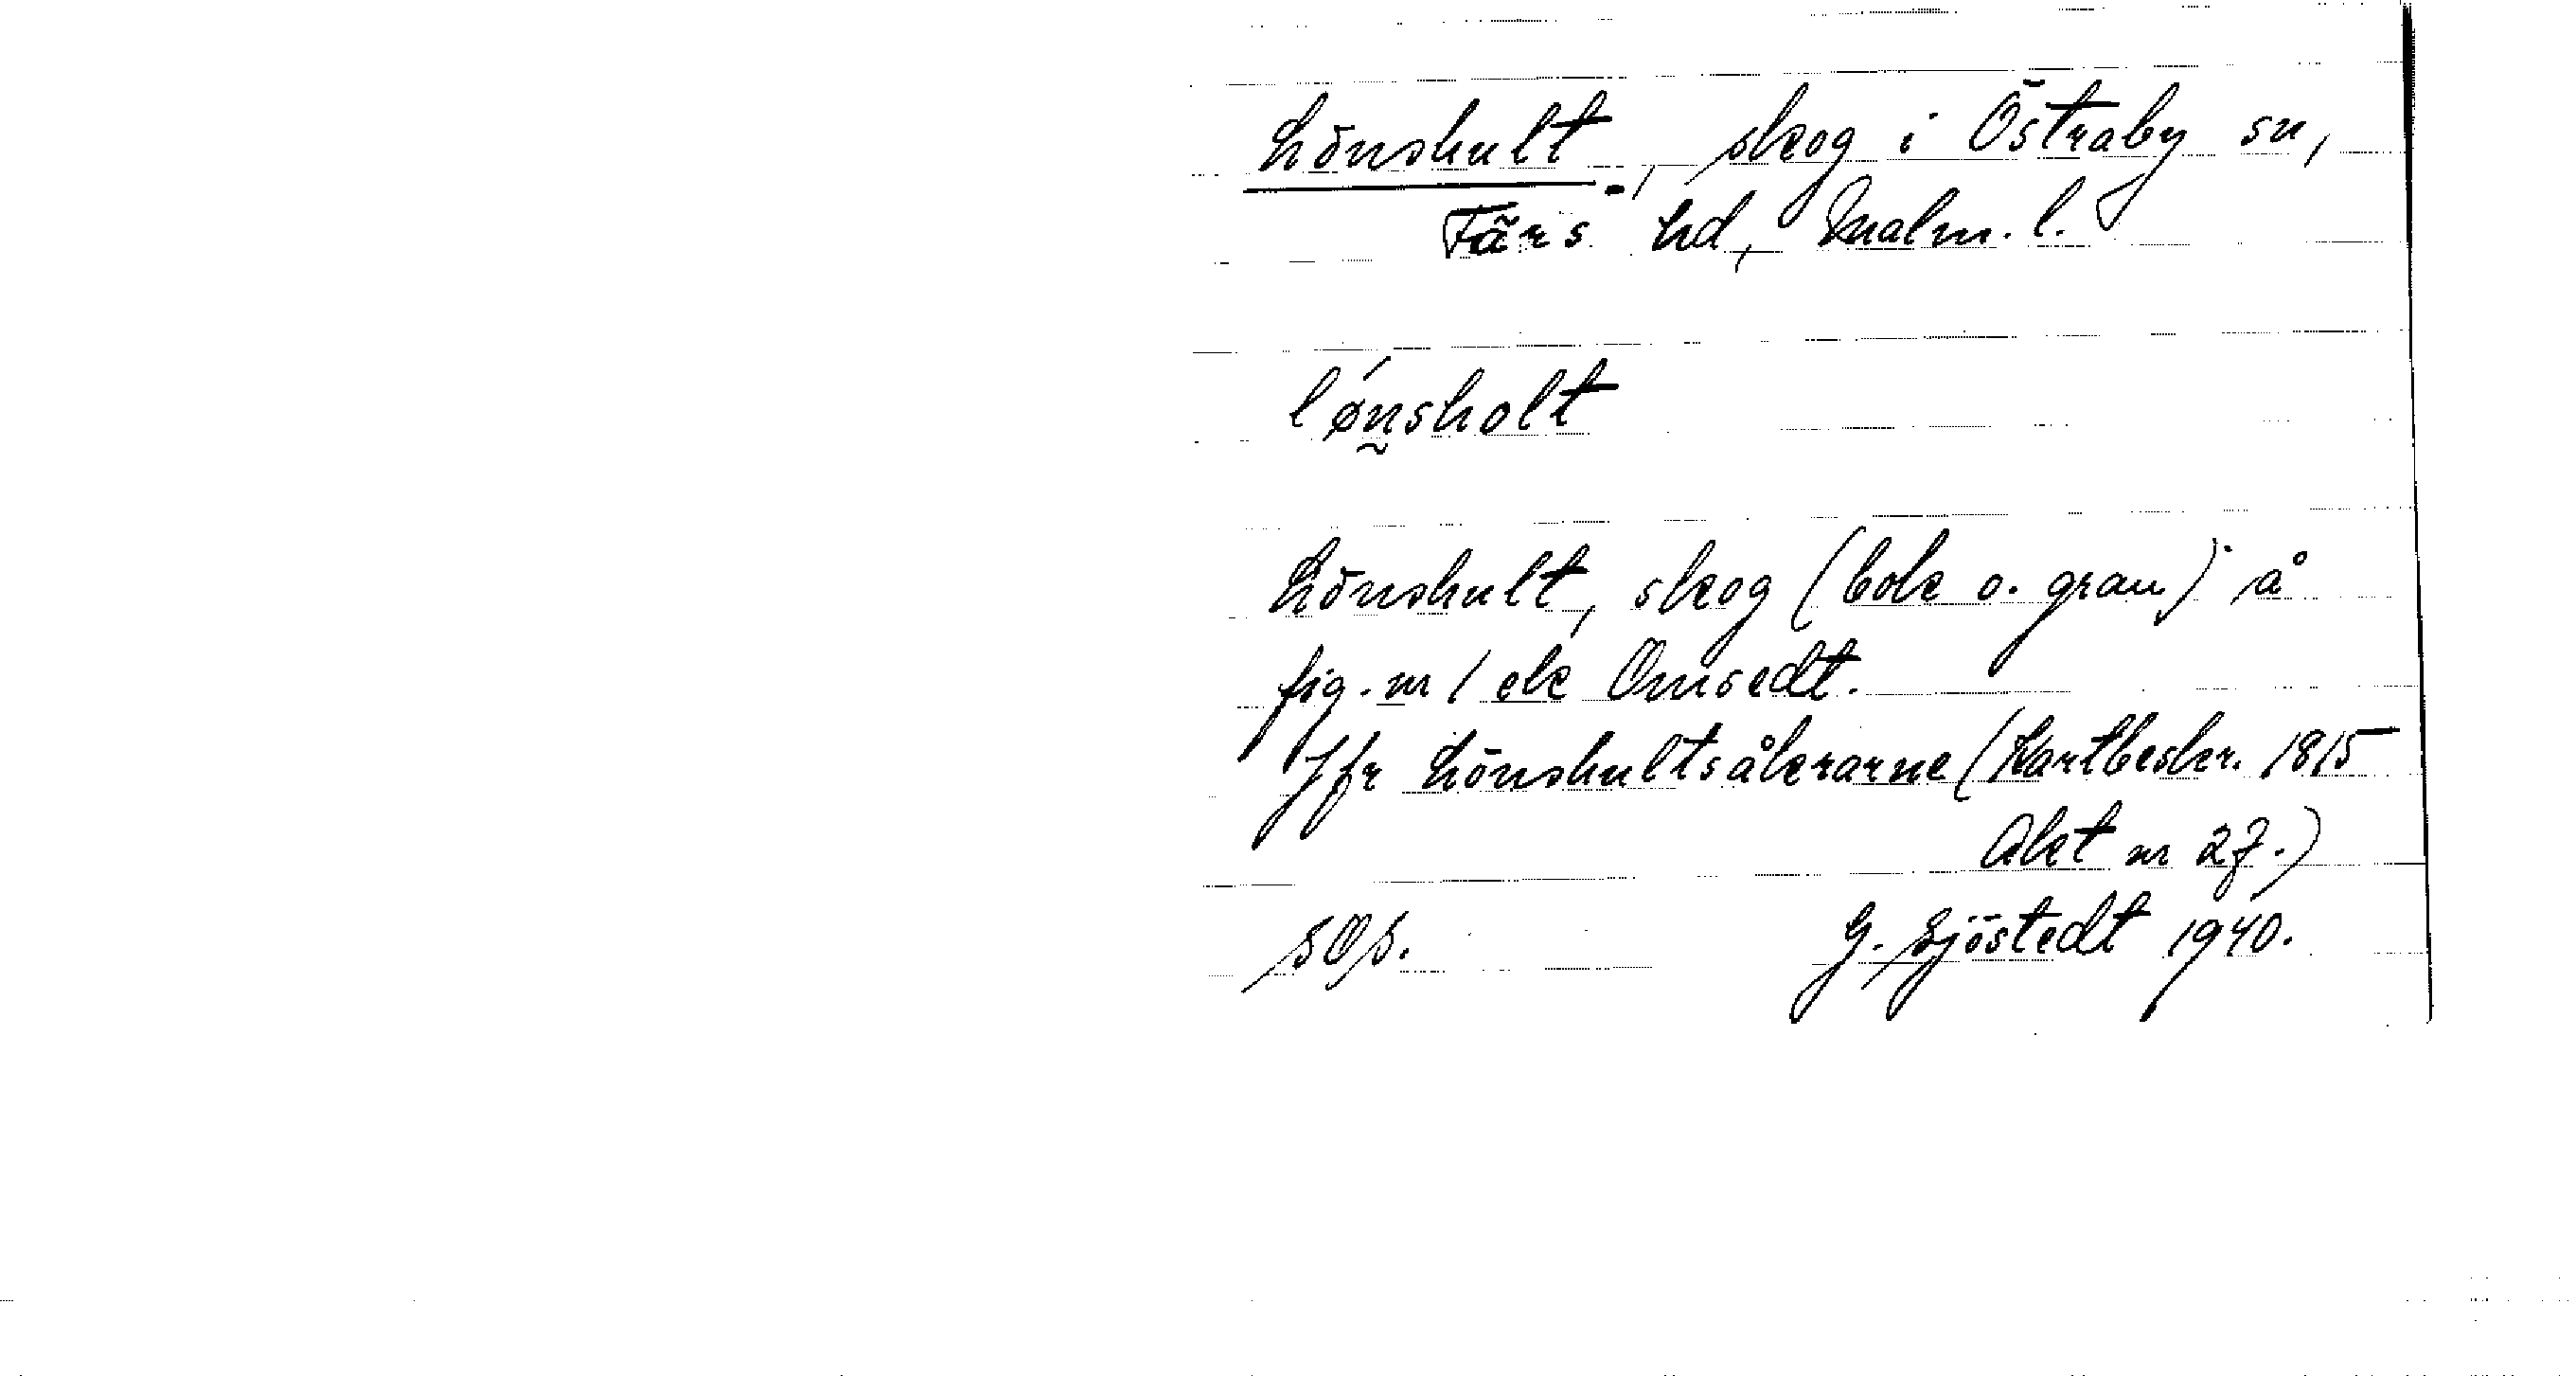 Lönshult, skog i Östraby sn,
Färs hd, Malm. l.
lǿnsholt
Lönshult, skog (bok o. gran) å
fig. nr 1 ek Omsedt.
Jfr Lönshultsåkrarne (Kartbeskr. 1815
Akt nr 27.)
G. Sjöstedt 1940.